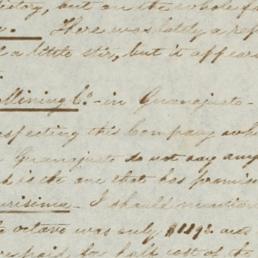 but on the whole f
There was lately a re
a little stir, but it appear
Mining Co. - in Guanajuato -
specting this Company wh
Guanajuato do not say any
is the one that has promis
urisima. - I should mention
octave was only $1192 and
paid for half cost of the